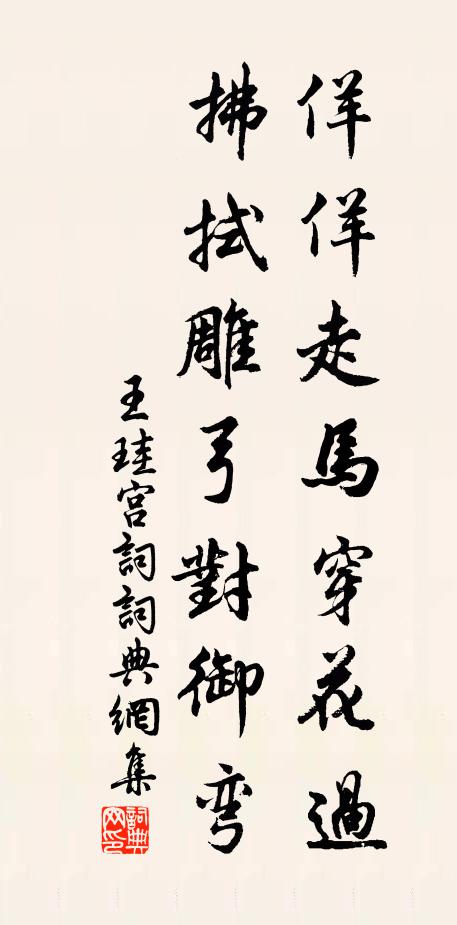 佯佯走馬穿花過
拂拭雕弓對御彎
王珪宮詞詞典網集
詞典網印